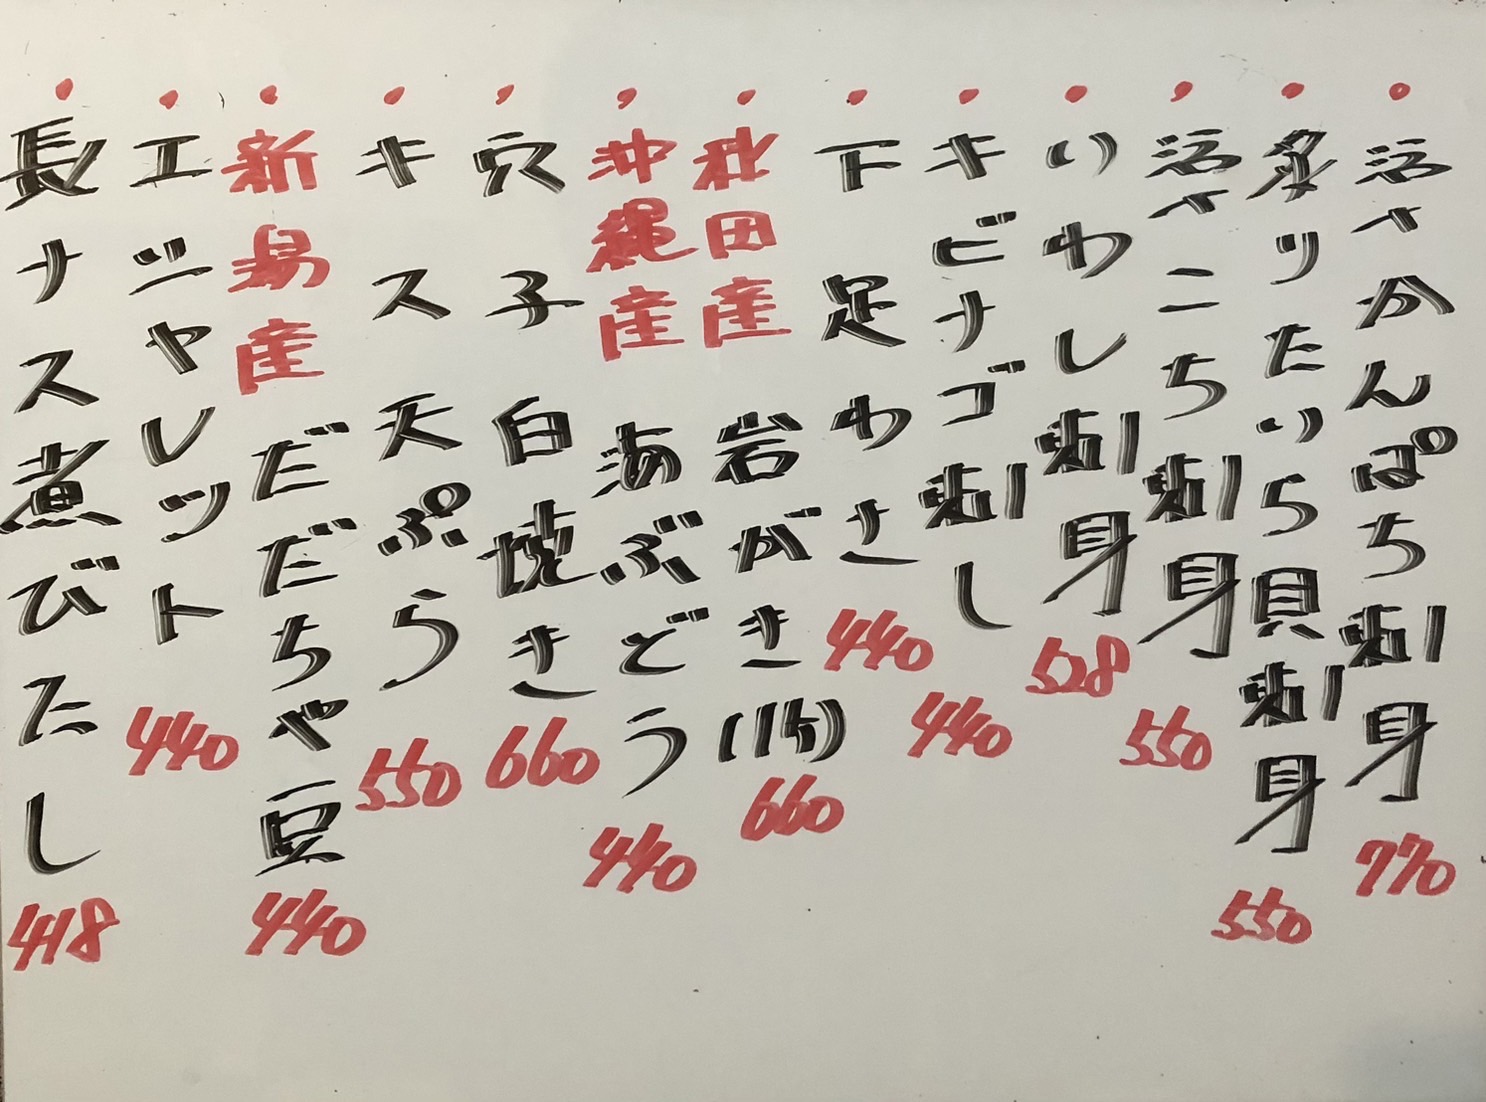 活〆かんぱち刺身 770
炙りたいら貝刺身 550
活〆こち刺身 550
いわし刺身 528
キビナゴ刺し 440
下足わさ 440
秋田産 岩がき(1ケ) 660
沖縄産 海ぶどう 440
穴子白焼き 660
キス天ぷら 550
新潟産 だだちゃ豆 440
エシャレット 440
長ナス煮びたし 418